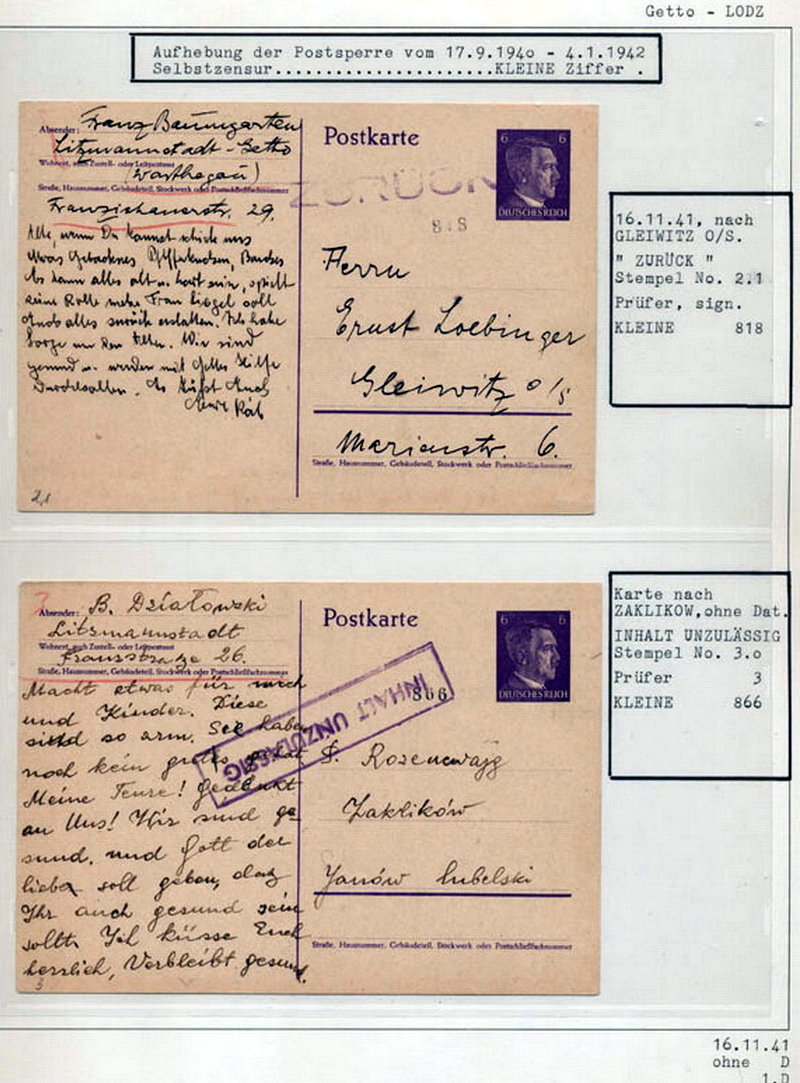 Getto - LODZ
Aufhebung der Postsperre vom 17.9.1940 - 4.1.1942
Selbstzensur......................KLEINE Ziffer .
Absender: Franz Baumgarten
Litzmannstadt - Getto
Wohnort, auch Zustell- oder Leitpostamt
(Warthegau)
Straße, Hausnummer, Gebäudeteil, Stockwerk oder Postschließfachnummer
Franziskanerstr. 29.
Alle, wenn Du kannst schick uns
etwas Gebackenes
Es kann alles alt u. hart sein, spielt
keine Rolle mehr Frau soll
Euch alles zurück erstatten. Ich habe
Sorge um den Alten. Wir sind
gesund u. werden mit Gottes Hilfe
Durchhalten. Es küßt Euch
2,1
Postkarte
ZURÜCK
818
6 6
DEUTSCHES REICH
Herrn
Ernst Loebinger
Gleiwitz o/s
Marienstr. 6.
Straße, Hausnummer, Gebäudeteil, Stockwerk oder Postschließfachnummer
16.11.41, nach
GLEIWITZ O/S.
" ZURÜCK "
Stempel No. 2.1
Prüfer, sign.
KLEINE 818
Absender: B. Działowski
Litzmannstadt
Wohnort, auch Zustell- oder Leitpostamt
Franzstraze 26.
Straße, Hausnummer, Gebäudeteil, Stockwerk oder Postschließfachnummer
Macht etwas für mich
und Kinder. Diese
sind so arm. Sie haben
noch kein
Meine Teure! Gedenkt
an Uns! Wir sind ge
sund, und Gott der
lieber soll geben, daz
Ihr auch gesund sein
sollt. Ich küsse Euch
herzlich, Verbleibt gesund.
3
Postkarte
INHALT UNZULÄSSIG
866
6 6
DEUTSCHES REICH
S. Rozenwajg
Zaklików
Janów lubelski
Straße, Hausnummer, Gebäudeteil, Stockwerk oder Postschließfachnummer
Karte nach
ZAKLIKOW,ohne Dat.
INHALT UNZULÄSSIG
Stempel No. 3.o
Prüfer 3
KLEINE 866
16.11.41
ohne D
1.D